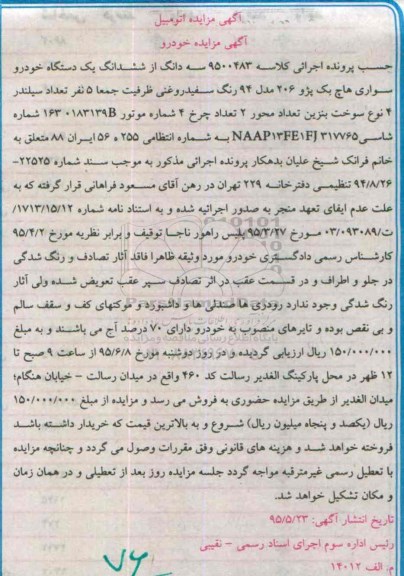 آگهی مزایده اتومبیل
آگهی مزایده خودرو
حسب پرونده اجرائی کلاسه ۹۵۰۰۴۸۳ سه دانگ از ششدانگ یک دستگاه خودرو
سواری هاچ بک پژو ۲۰۶ مدل ۹۴ رنگ سفیدروغنی ظرفیت جمعا ۵ نفر تعداد سیلندر
۴ نوع سوخت بنزین تعداد محور ۲ تعداد چرخ ۴ شماره موتور ۱۶۳B۰۱۸۳۱۳۹ شماره
شاسی NAAP۱۳FE۱FJ۳۱۷۷۶۵ به شماره انتظامی ۲۵۵ ه ۵۶ ایران ۸۸ متعلق به
خانم فرانک شیخ علیان بدهکار پرونده اجرائی مذکور به موجب سند شماره ۲۲۵۲۵-
۹۴/۸/۲۶ تنظیمی دفترخانه ۲۲۹ تهران در رهن آقای مسعود فراهانی قرار گرفته که به
علت عدم ایفای تعهد منجر به صدور اجرائیه شده و به استناد نامه شماره ۱۷۱۳/۱۵/۱۲/
ت/۰۳/۰۹۳۰۸۹ مورخ ۹۵/۳/۲۷ پلیس راهور ناجا توقیف و برابر نظریه مورخ ۹۵/۴/۲
کارشناس رسمی دادگستری خودرو مورد وثیقه ظاهرا فاقد آثار تصادف و رنگ شدگی
در جلو و اطراف و در قسمت عقب در اثر تصادف سپر عقب تعویض شده ولی آثار
رنگ شدگی وجود ندارد رودزی ها صندلی ها و داشبورد و موکتهای کف و سقف سالم
و بی نقص بوده و تایرهای منصوب به خودرو دارای ۷۰ درصد آج می باشند و به مبلغ
۱۵۰/۰۰۰/۰۰۰ ریال ارزیابی گردیده و در روز دوشنبه مورخ ۹۵/۶/۸ از ساعت ۹ صبح تا
۱۲ ظهر در محل پارکینگ الغدیر رسالت کد ۴۶۰ واقع در میدان رسالت – خیابان هنگام؛
میدان الغدیر از طریق مزایده حضوری به فروش می رسد و مزایده از مبلغ ۱۵۰/۰۰۰/۰۰۰
ریال (یکصد و پنجاه میلیون ریال) شروع و به بالاترین قیمت که خریدار داشته باشد
فروخته خواهد شد و هزینه های قانونی وفق مقررات وصول می گردد و چنانچه مزایده
با تعطیل رسمی غیرمترقبه مواجه گردد جلسه مزایده روز بعد از تعطیلی و در همان زمان
و مکان تشکیل خواهد شد.
تاریخ انتشار آگهی: ۹۵/۵/۲۳
رئیس اداره سوم اجرای اسناد رسمی – نقیبی
م: الف ۱۴۰۱۲
۷۶